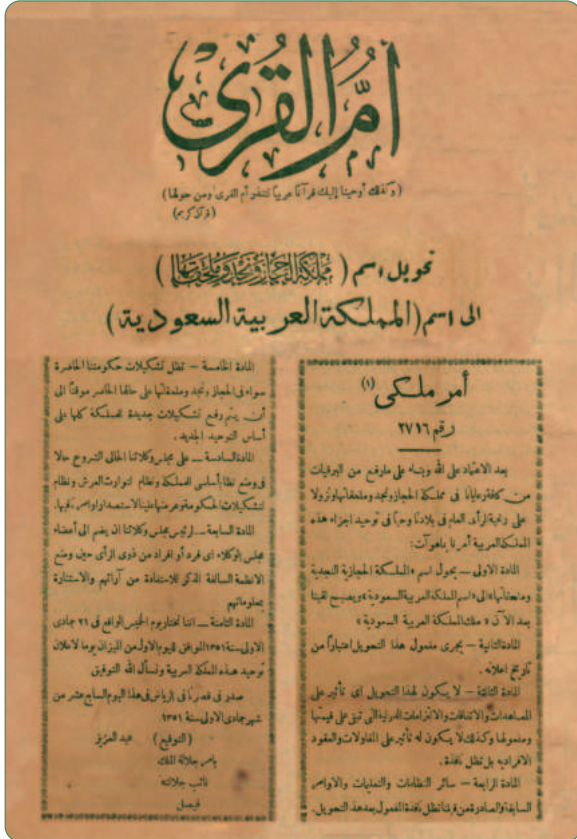 أمُّ القُرى
(وكذلك أوحينا إليك قرآنا عربيا لتنذر أم القرى ومن حولها)
(قرآن كريم)
تحويل اسم (مملكة الحجاز ونجد وملحقاتها)
الى اسم (المملكة العربية السعودية)
أمر ملكي (١)
رقم ٢٧١٦
بعد الاعتماد على الله وبناء على مارفع من البرقيات
من كافة رعايانا في مملكة الحجاز ونجد وملحقاتها ونزولا
على رغبة الرأى العام في بلادنا وحبا في توحيد اجزاء هذه
المملكة العربية أمرنا بما هو آت:
المادة الاولى – يحول اسم «المملكة الحجازية النجدية
وملحقاتها» الى «اسم المملكة العربية السعودية» ويصبح لقبنا
بعد الآن «ملك المملكة العربية السعودية»
المادة الثانية – يجرى مفعول هذا التحويل اعتبارا من
تاريخ اعلانه.
المادة الثالثة – لا يكون لهذا التحويل اى تأثير على
المعاهدات والاتفاقات والالتزامات الدولية التى تبقى على قيمتها
ومفعولها وكذلك لا يكون له تأثير على المقاولات والعقود
الافرادية بل تظل نافذة.
المادة الرابعة – سائر النظامات والتعليمات والاوامر
السابقة والصادرة من قبلنا تظل نافذة المفعول بعد هذا التحويل.
المادة الخامسة – تظل تشكيلات حكومتنا الحاضرة
سواء في الحجاز ونجد وملحقاتها على حالها الحاضر موقتا الى
أن يتم رفع تشكيلات جديدة للمملكة كلها على
أساس التوحيد الجديد.
المادة السادسة – على مجلس وكلائنا الحالى الشروع حالا
في وضع نظام أساسى للمملكة ونظام لتوارث العرش ونظام
لتشكيلات الحكومة وعرضها علينا لاستصدار اوامرنا فيها.
المادة السابعة – لرئيس مجلس وكلائنا ان يضم الى أعضاء
مجلس الوكلاء اى فرد أو افراد من ذوى الرأى حين وضع
الانظمة السالفة الذكر للاستفادة من آرائهم والاستنارة
بمعلوماتهم
المادة الثامنة – اننا نختار يوم الخميس الواقع في ٢١ جمادى
الاولى سنة ١٣٥١ الموافق لليوم الاول من الميزان يوما لاعلان
توحيد هذه المملكة العربية ونسأل الله التوفيق
صدر في قصرنا في الرياض في هذا اليوم السابع عشر من
شهر جمادى الاولى سنة ١٣٥١
(التوقيع) عبد العزيز
بامر جلالة الملك
نائب جلالته
فيصل